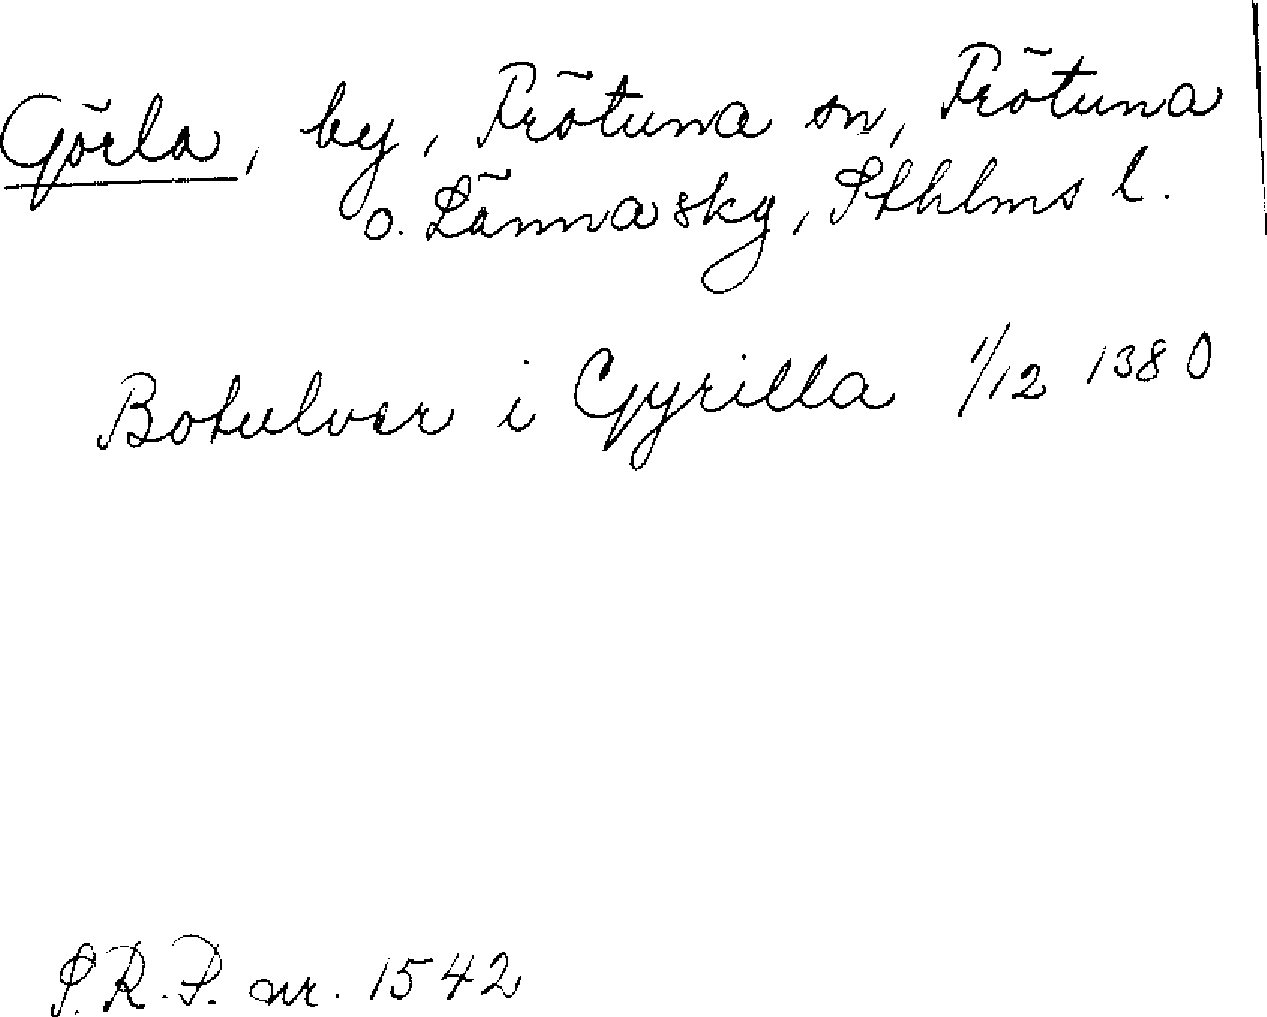 Görla, by, Frötuna sn, Frötuna
o. Länna skg, Sthlms l.
Botulver i Gyrilla 1/12 1380
S.R.P. nr. 1542